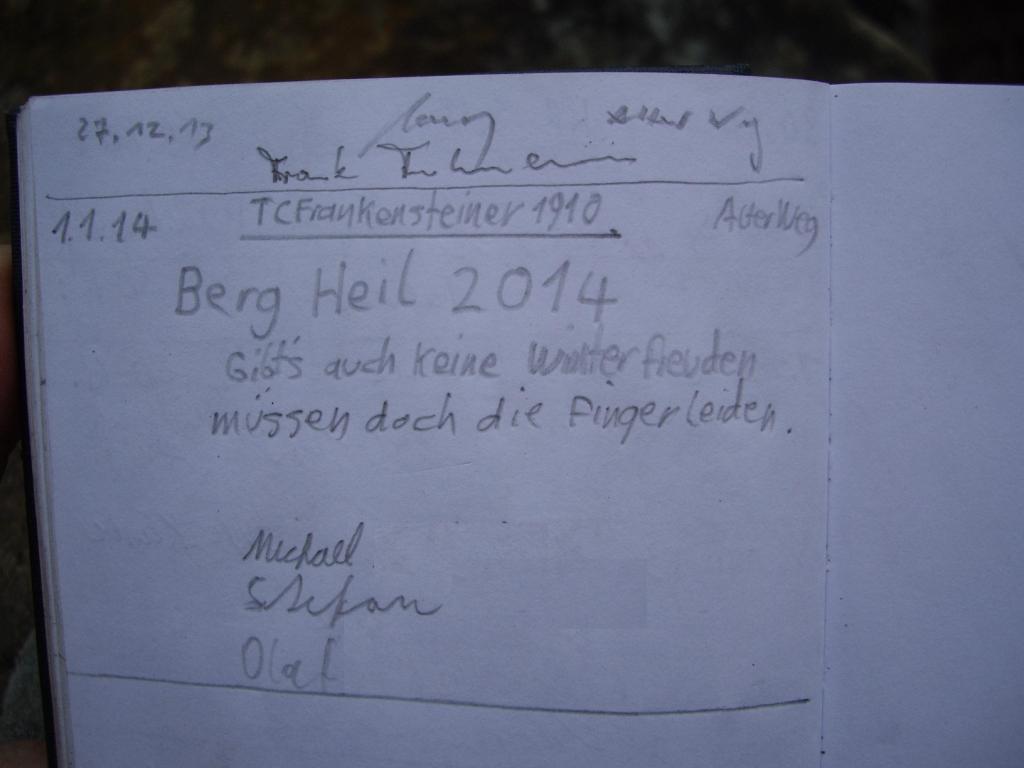 27.12.13
Frank
1.1.14 TC Frankensteiner 1910 Alter Weg
Berg Heil 2014
Gibt's auch keine Winterfreuden
müssen doch die Finger leiden.
Michael
Stefan
Olaf